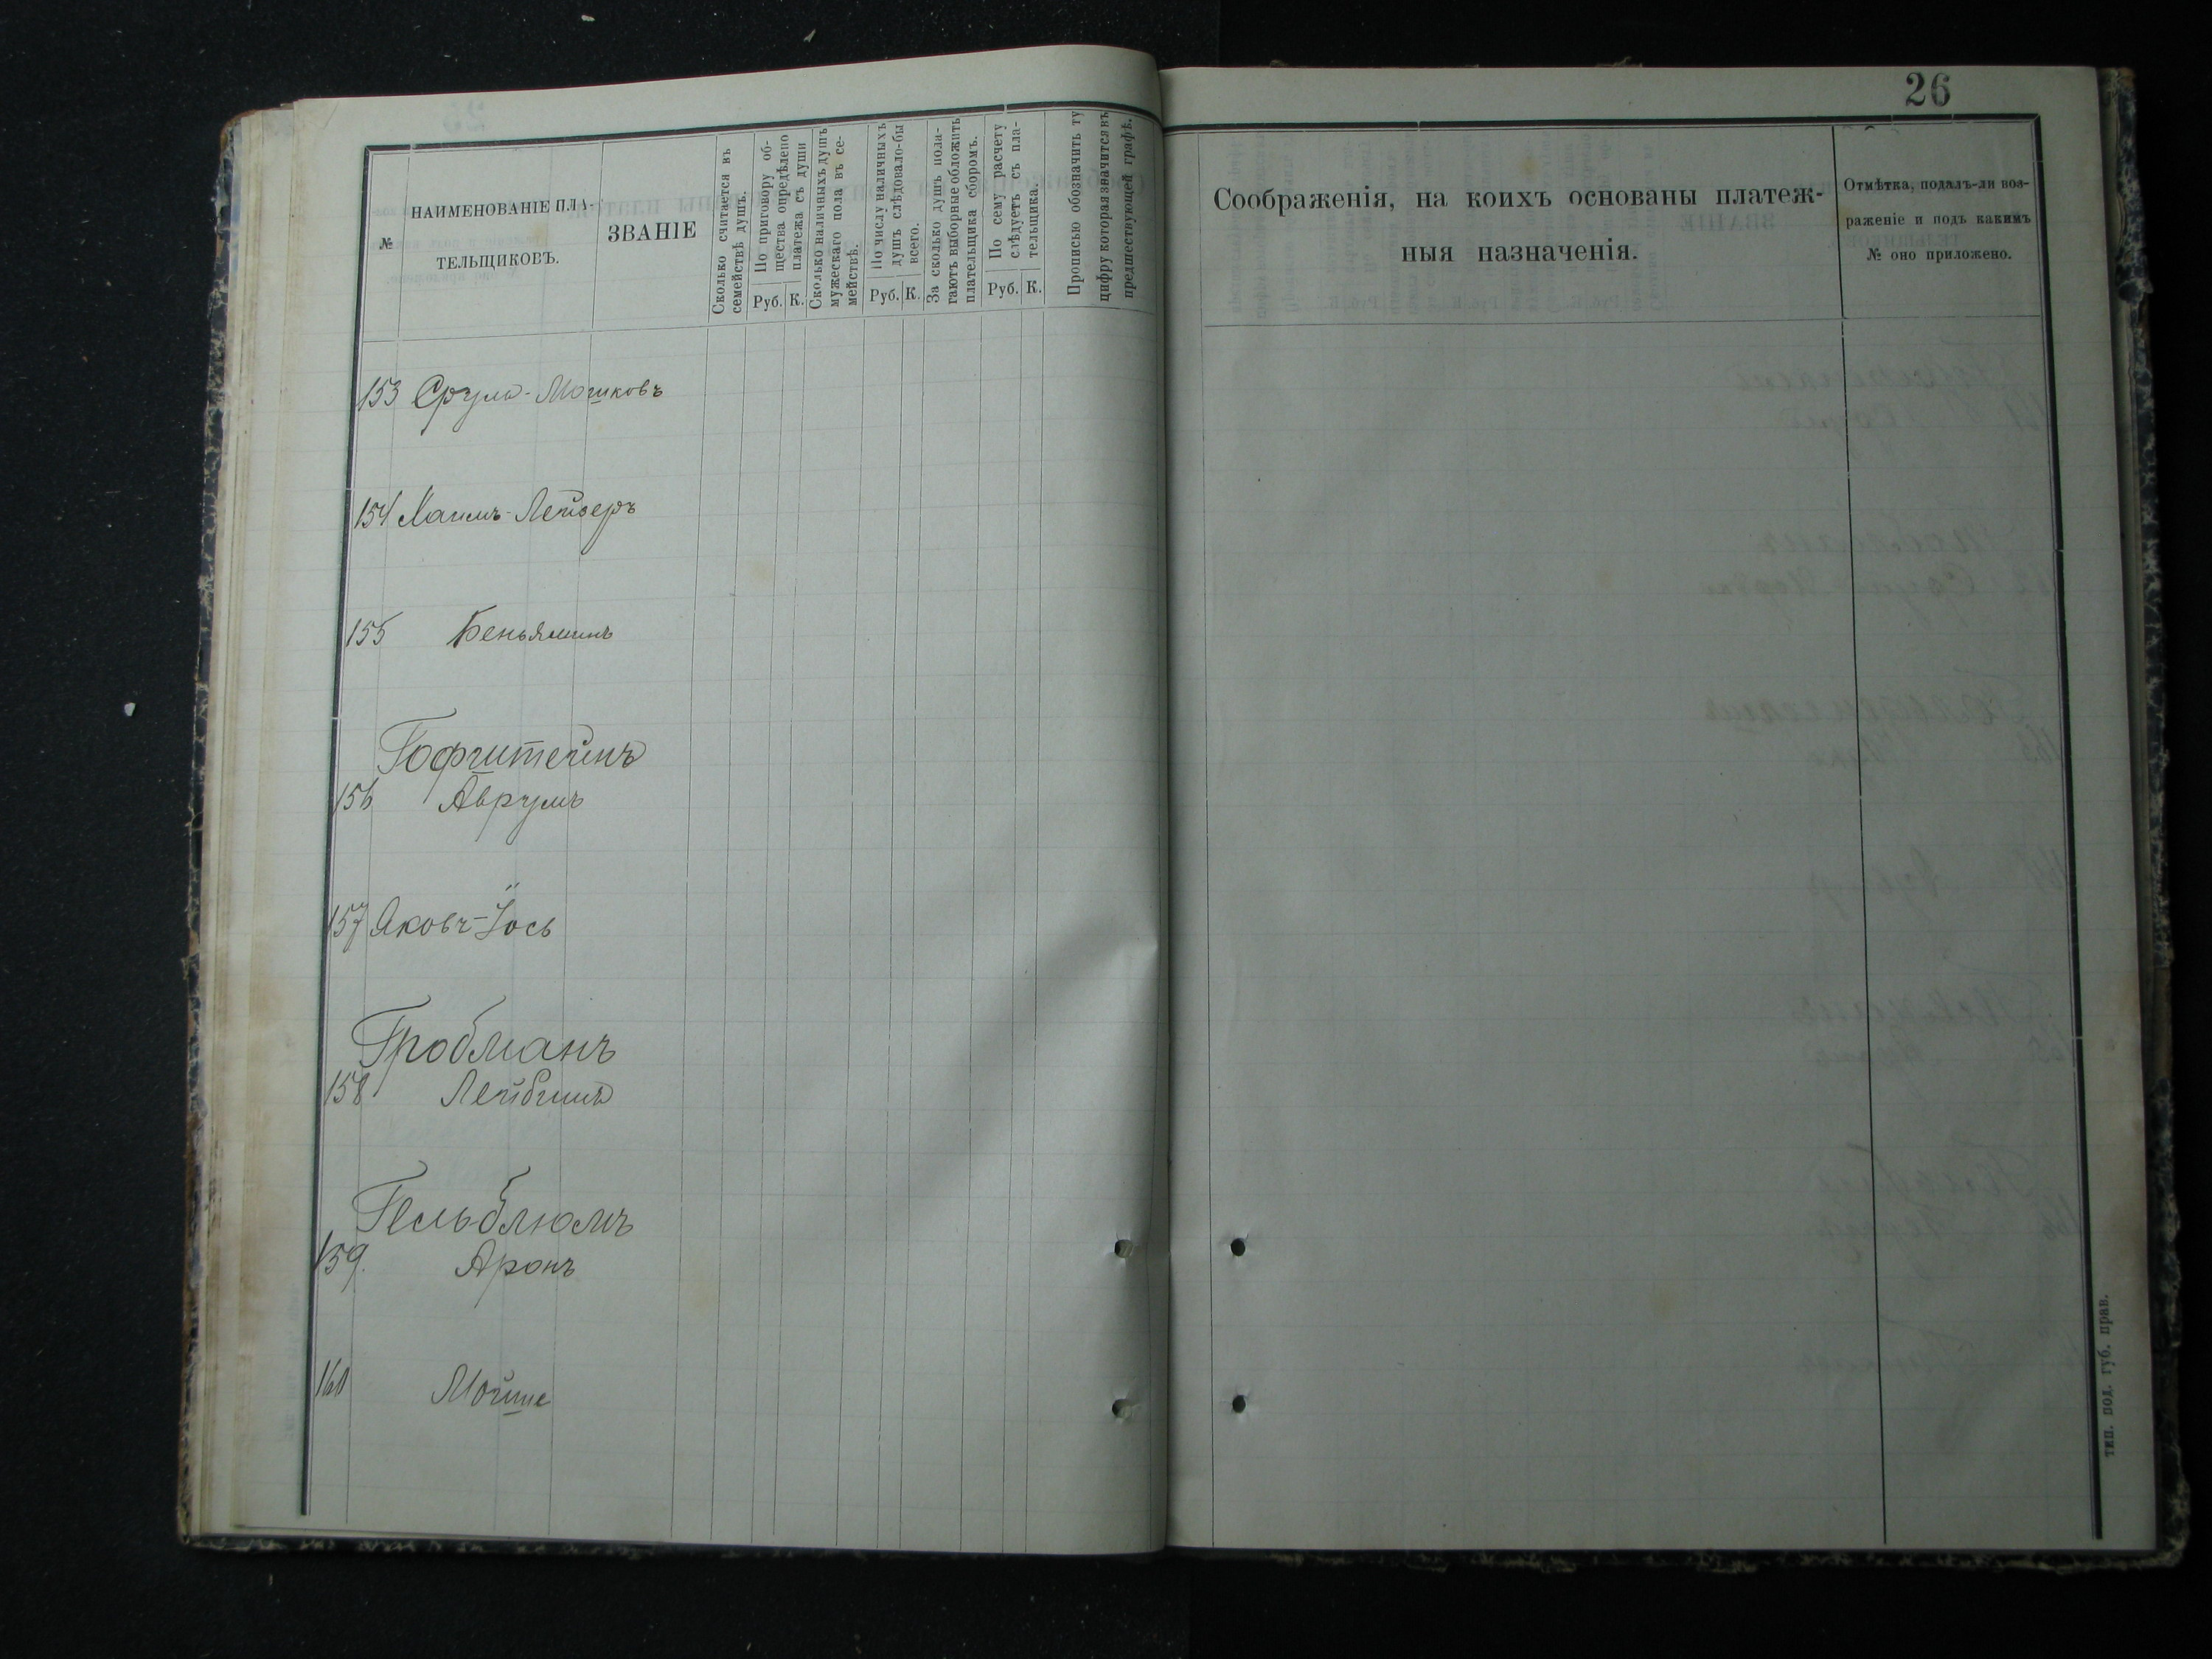 26
№
НАИМЕНОВАНІЕ ПЛА-
ТЕЛЬЩИКОВЪ.
ЗВАНІЕ
Сколько считается въ
семействѣ душъ.
По приговору об-
щества опредѣлено
платежа съ души
Руб. К.
Сколько наличныхъ душъ
мужескаго пола въ се-
мействѣ.
По числу наличныхъ
душъ слѣдовало-бы
всего.
Руб. К.
За сколько душъ пола-
гаютъ выборные обложить
плательщика сборомъ.
По сему расчету
слѣдуетъ съ пла-
тельщика.
Руб. К.
Прописью обозначить ту
цифру которая значится въ
предшествующей графѣ.
Соображенія, на коихъ основаны платеж-
ныя назначенія.
Отмѣтка, подалъ-ли воз-
раженіе и подъ какимъ
№ оно приложено.
153 Срулъ-Мошковъ
154 Хаимъ-Лейзеръ
155 Беньяминъ
Гофштейнъ
156 Аврумъ
157 Яковъ-Іось
Гробманъ
158 Лейбишъ
Гельблюмъ
159. Аронъ
160 Мойше
тип. под. губ. прав.